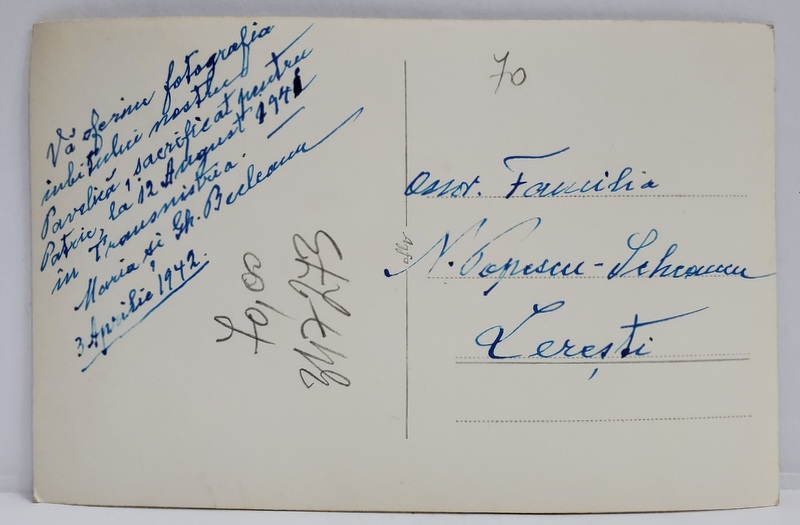 Vă oferim fotografia
iubitului nostru
Pavelică, sacrificat pentru
Patrie, la 12 August 1941
în Transnistria.
Maria și Gh.
3 Aprilie 1942.
70,00
347273
70
Familia
N. Popescu-
Lerești